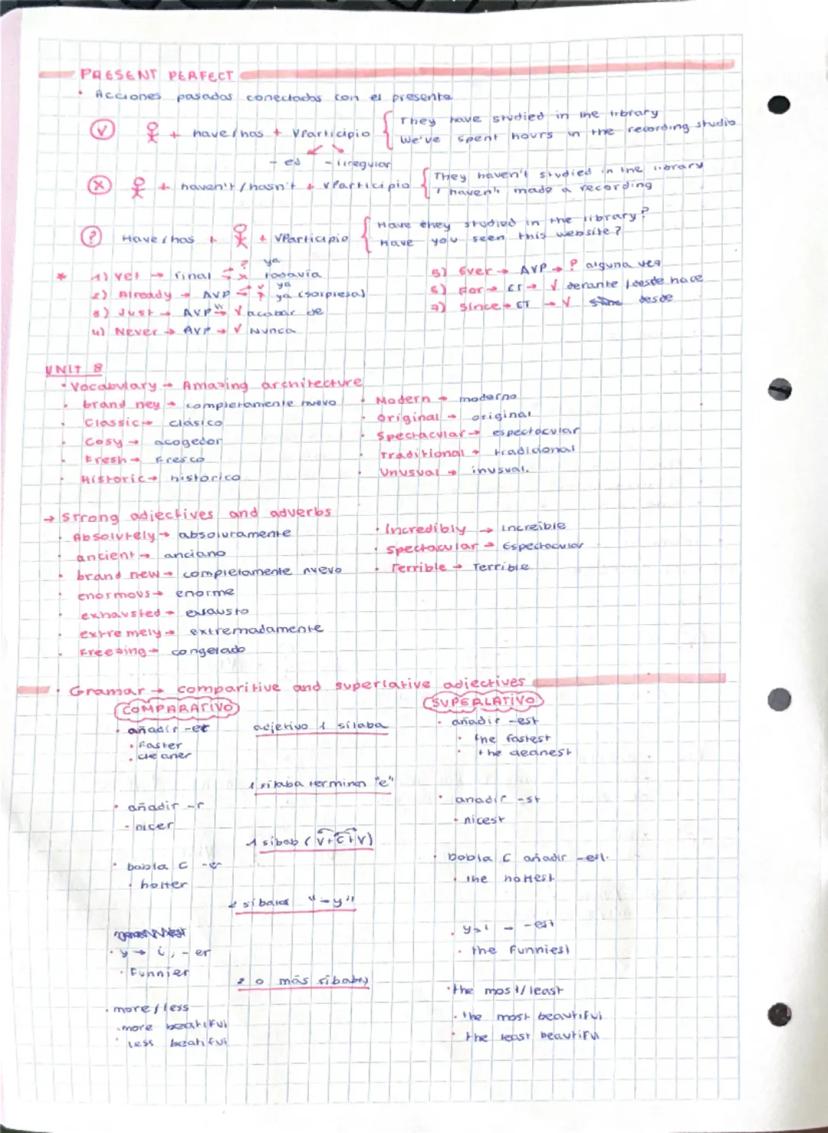 PRESENT PERFECT
• Acciones pasadas conectadas con el presente
V + have/has + VParticipio { They have studied in the library
We've spent hours in the recording studio
- ed - irregular
X + haven't/hasn't + VParticipio { They haven't studied in the library
I haven't made a recording
? Have/has + + VParticipio { Have they studied in the library?
Have you seen this website?
* 1) Yet → final → ? ya x todavía
2) Already → AVP → V ya ? ya (sorpresa)
3) Just → AVP → V acabar de
4) Never → AVP → V Nunca
5) Ever → AVP → ? alguna vez
6) For → CT → V derante / desde hace
7) Since → CT → V desde
UNIT 8
• Vocabulary → Amazing architecture
• brand ney → completamente nuevo
• Classic → clásico
• Cosy → acogedor
• Fresh → Fresco
• Historic → historico
• Modern → moderno
• Original → original
• Spectacular → espectacular
• Traditional → tradicional
• Unusual → inusual.
→ Strong adjectives and adverbs
• Absolutely → absoluramente
• ancient → anciano
• brand new → completamente nuevo
• enormous → enorme
• exhausted → exausto
• extremely → extremadamente
• Freezing → congelado
• Incredibly → Increible
• Spectacular → Espectacular
• Terrible → Terrible
• Gramar → comparitive and superlative adjectives
COMPARATIVO SUPERLATIVO
• añadir -er adjetivo 1 sílaba • añadir -est
• Faster • the fastest
• cleaner • the cleanest
1 sílaba terminen "e"
• añadir -r • anadir -st
• nicer • nicest
1 sibab (V+C+V)
• dobla C -er • Dobla C añadir -est.
• hotter • the hottest
2 sibalas "-y"
• y → i, -er • y>i → -est
• Funnier • the Funniest
2 o más sibabas
• more/less • the most/least
• more beatiful • the most beautiful
• less beatiful • the least beautiful